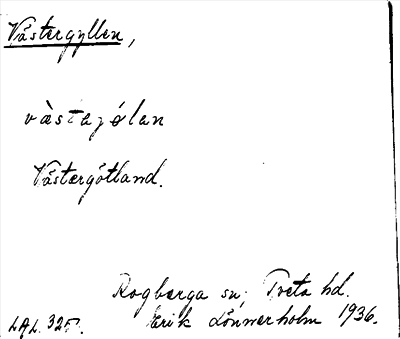 Västergyllen,
västajólan
Västergötland.
Rogberga sn, Tveta hd.
Erik Lönnerholm 1936.